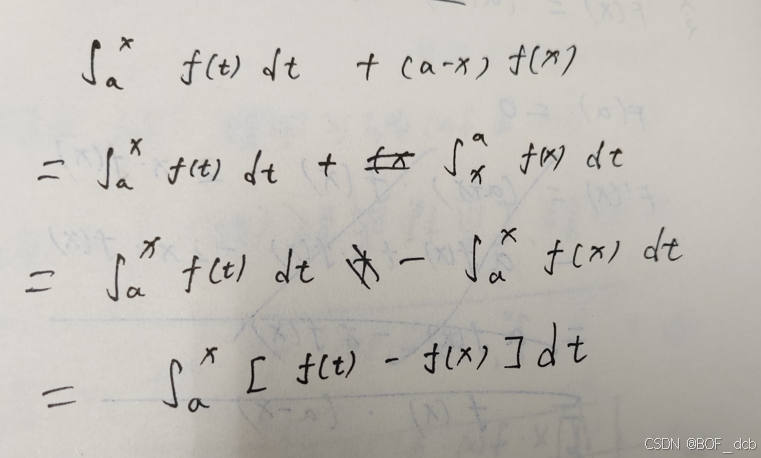 ∫ₐˣ f(t) dt + (a-x) f(x)
= ∫ₐˣ f(t) dt + ∫ₓᵃ f(x) dt
= ∫ₐˣ f(t) dt - ∫ₐˣ f(x) dt
= ∫ₐˣ [ f(t) - f(x) ] dt
CSDN @BOF_dcb